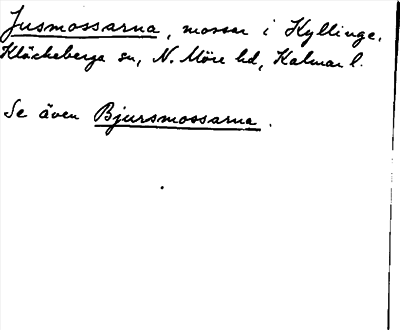 Jusmossarna, mossar i Kyllinge,
Kläckeberga sn, N. Möre hd, Kalmar l.
Se även Bjursmossarna.